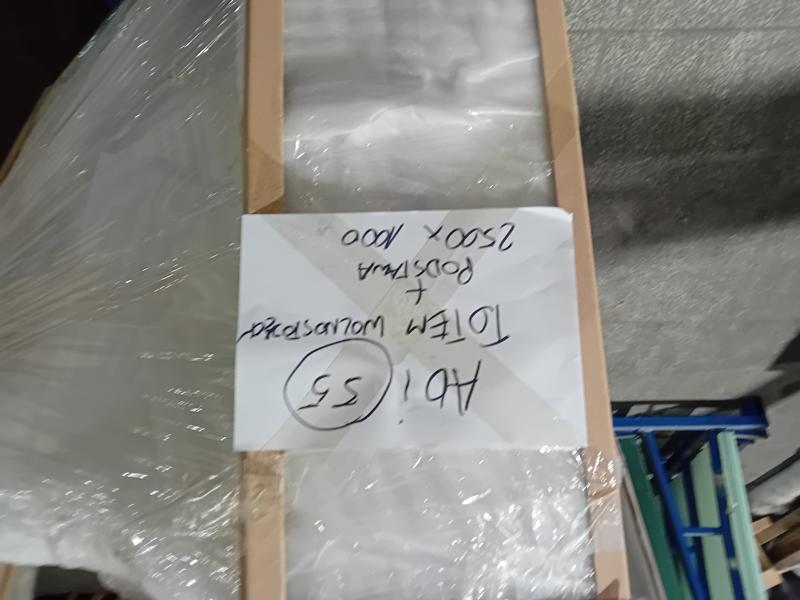 ADi 55
TOTEM WOLNOSTOJĄCY
+
PODSTAWA
2500 x 1000